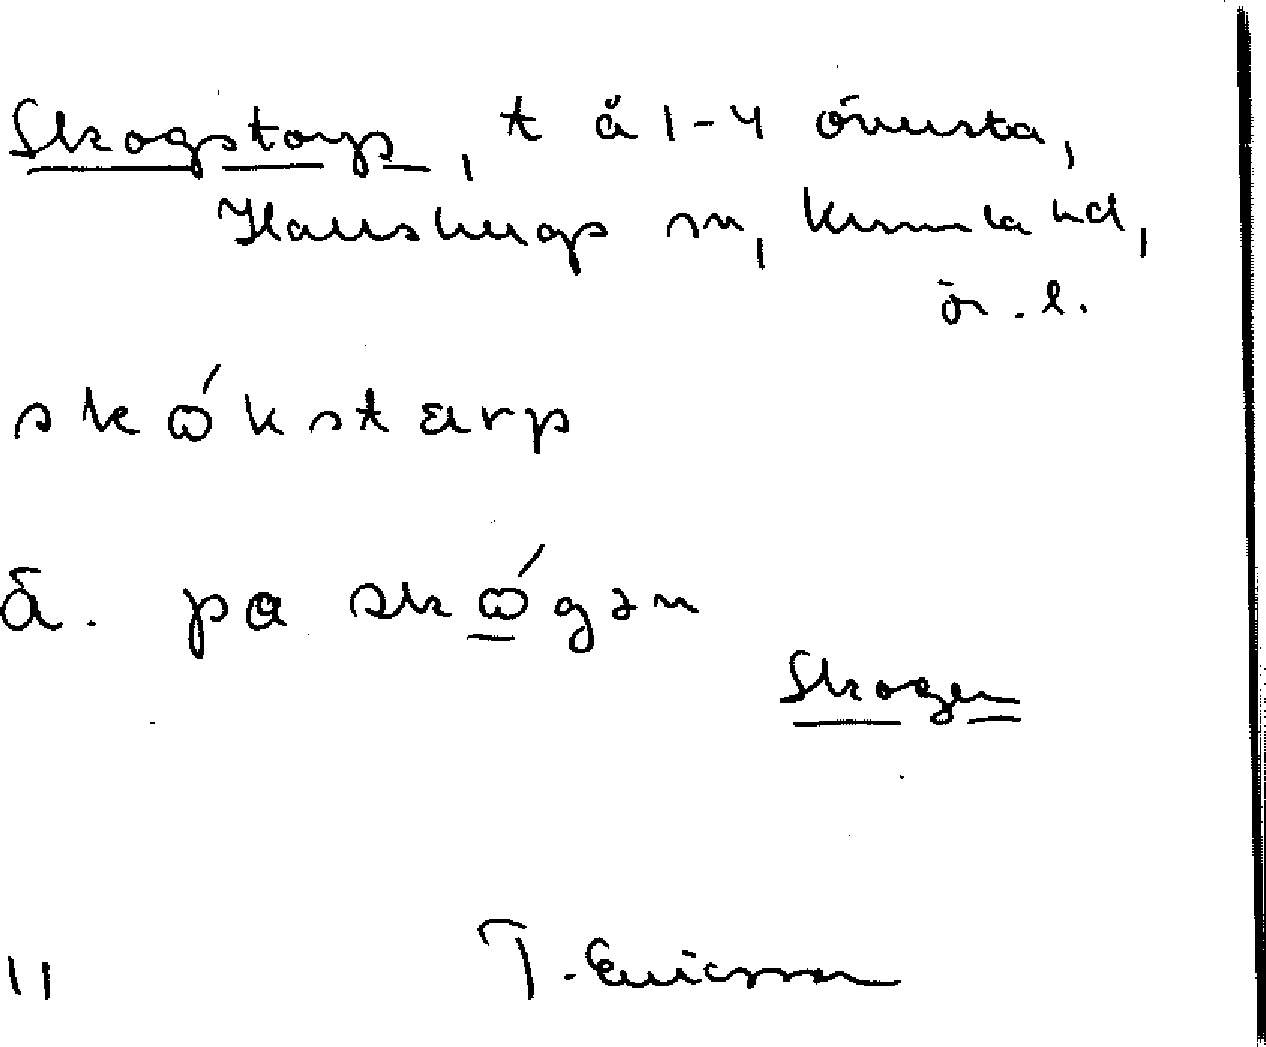 Skogstorp, t å 1-4 Örvesta,
Hallsbergs sn, Kumla hd,
Ör. l.
skώkstarp
Ä. pa skώgən
Skogen
11 T. Ericsson